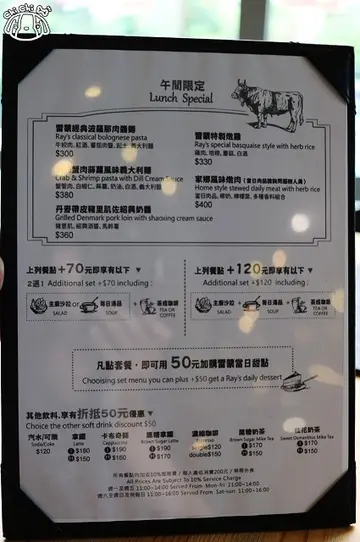 chi chi Do!
午間限定
Lunch Special
雷蒙經典波羅那肉醬麵
Ray's classical bolognese pasta
牛絞肉, 紅酒, 蕃茄肉醬, 起士, 義大利麵
$300
蟹肉蒔蘿風味義大利麵
Crab & Shrimp pasta with Dill Cream Sauce
蟹管肉, 白蝦仁, 蒔蘿, 奶油, 白酒, 義大利麵
$380
丹麥帶皮豬里肌佐紹興奶醬
Grilled Denmark pork loin with shaoxing cream sauce
豬里肌, 紹興奶醬, 馬鈴薯
$360
雷蒙特製燉雞
Ray's special basquaise style with herb rice
雞肉, 培根, 蘑菇, 白酒
$330
家鄉風味燉肉 (當日肉品請詢問服務人員)
Home style stewed daily meat with herb rice
當日肉品, 椰奶, 檸檬葉, 多種香料組合
$400
上列餐點+70元即享有以下 ▼
2選1 Additional set +$70 including :
主廚沙拉
SALAD
每日湯品
SOUP
+
茶或咖啡
TEA OR COFFEE
上列餐點+120元即享有以下 ▼
Additional set +$120 including :
主廚沙拉
SALAD
+
每日湯品
SOUP
+
茶或咖啡
TEA OR COFFEE
凡點套餐，即可用 50元加購雷蒙當日甜點
Chooising set menu you can plus +$50 get a Ray's daily dessert
其他飲料,享有折抵50元優惠 ▼
Choice the other soft drink discount $50
汽水/可樂
Soda/Coke
$120
拿鐵
Latte
$180
$150
卡布奇諾
Cappuccino
$190
$150
黑糖拿鐵
Brown Sugar Latte
$190
$170
濃縮咖啡
double$150
黑糖奶茶
Brown Sugar Milke Tea
$170
$150
桂花奶茶
Sweet Osmanthus Milke Tea
$170
$150
所有餐點均加收10%服務費 / 每人最低消費200元 / 謝絕外食
All Prices Are Subject To 10% Service Charge
週一至週五 11:00~14:00 Served From Mon-fri 11:00~14:00
週六至週日及例假日 11:00~16:00 Served From Sat-sun 11:00~16:00